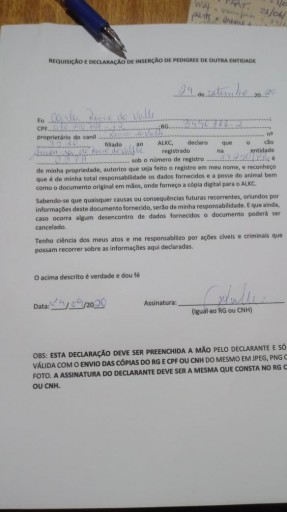 REQUISIÇÃO E DECLARAÇÃO DE INSERÇÃO DE PEDIGREE DE OUTRA ENTIDADE
24 de setembro 20 20
Eu
CPF ;RG
proprietário do canil nº
filiado ao ALKC, declaro que o cão
registrado na entidade
sob o número de registro e
de minha propriedade, autorizo que seja feito o registro em meu nome, e reconheço
que é de minha total responsabilidade os dados fornecidos e a posse do animal bem
como o documento original em mãos, onde forneço a cópia digital para o ALKC.
Sabendo-se que quaisquer causas ou consequências futuras recorrentes, oriundos por
informações deste documento fornecido, serão de minha responsabilidade. E que ainda,
caso ocorra algum desencontro de dados fornecidos o documento poderá ser
cancelado.
Tenho ciência dos meus atos e me responsabilizo por ações cíveis e criminais que
possam recorrer sobre as informações aqui declaradas.
O acima descrito é verdade e dou fé
Data: /20 20 Assinatura:
(igual ao RG ou CNH)
OBS: ESTA DECLARAÇÃO DEVE SER PREENCHIDA A MÃO PELO DECLARANTE E SÓ
VÁLIDA COM O ENVIO DAS CÓPIAS DO RG E CPF OU CNH DO MESMO EM JPEG, PNG
FOTO. A ASSINATURA DO DECLARANTE DEVE SER A MESMA QUE CONSTA NO RG
OU CNH.